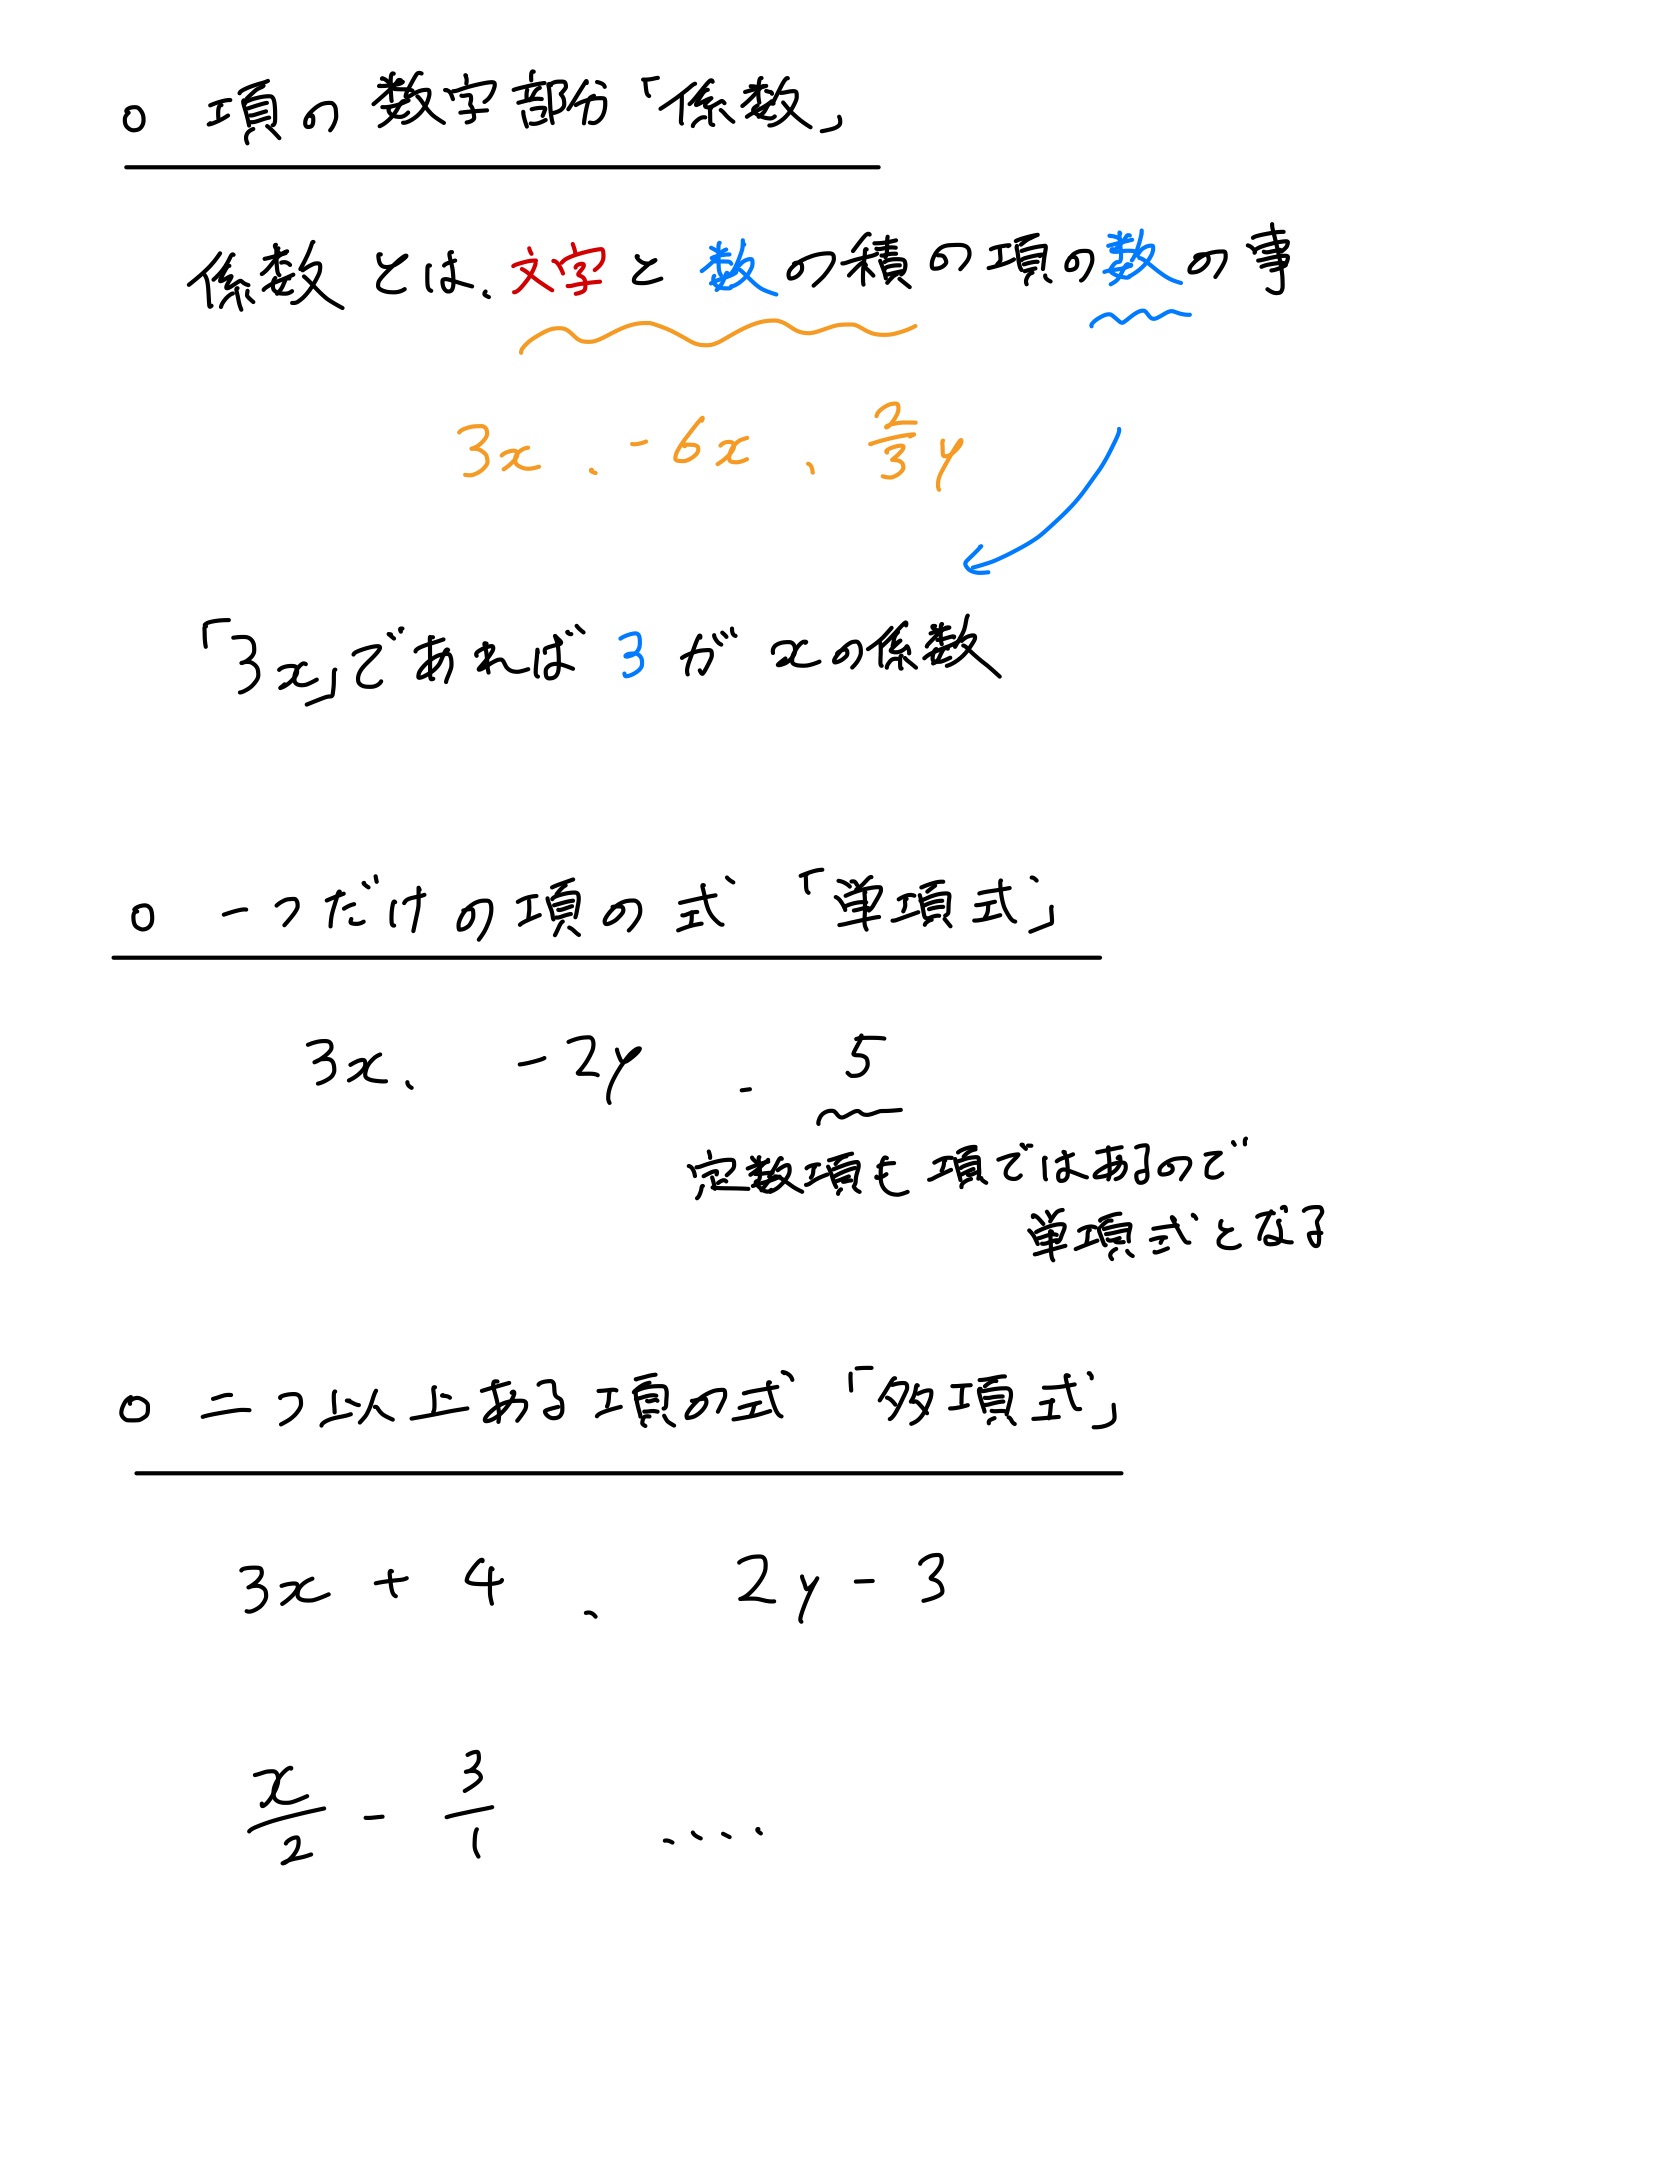 ○ 項の数字部分「係数」
係数とは、文字と数の積の項の数の事
3x、-6x、2/3 y
「3x」であれば3がxの係数
○ 一つだけの項の式「単項式」
3x、 -2y 、 5
定数項も項ではあるので
単項式となる
○ 二つ以上ある項の式「多項式」
3x + 4 、 2y - 3
x/2 - 3/1 ....